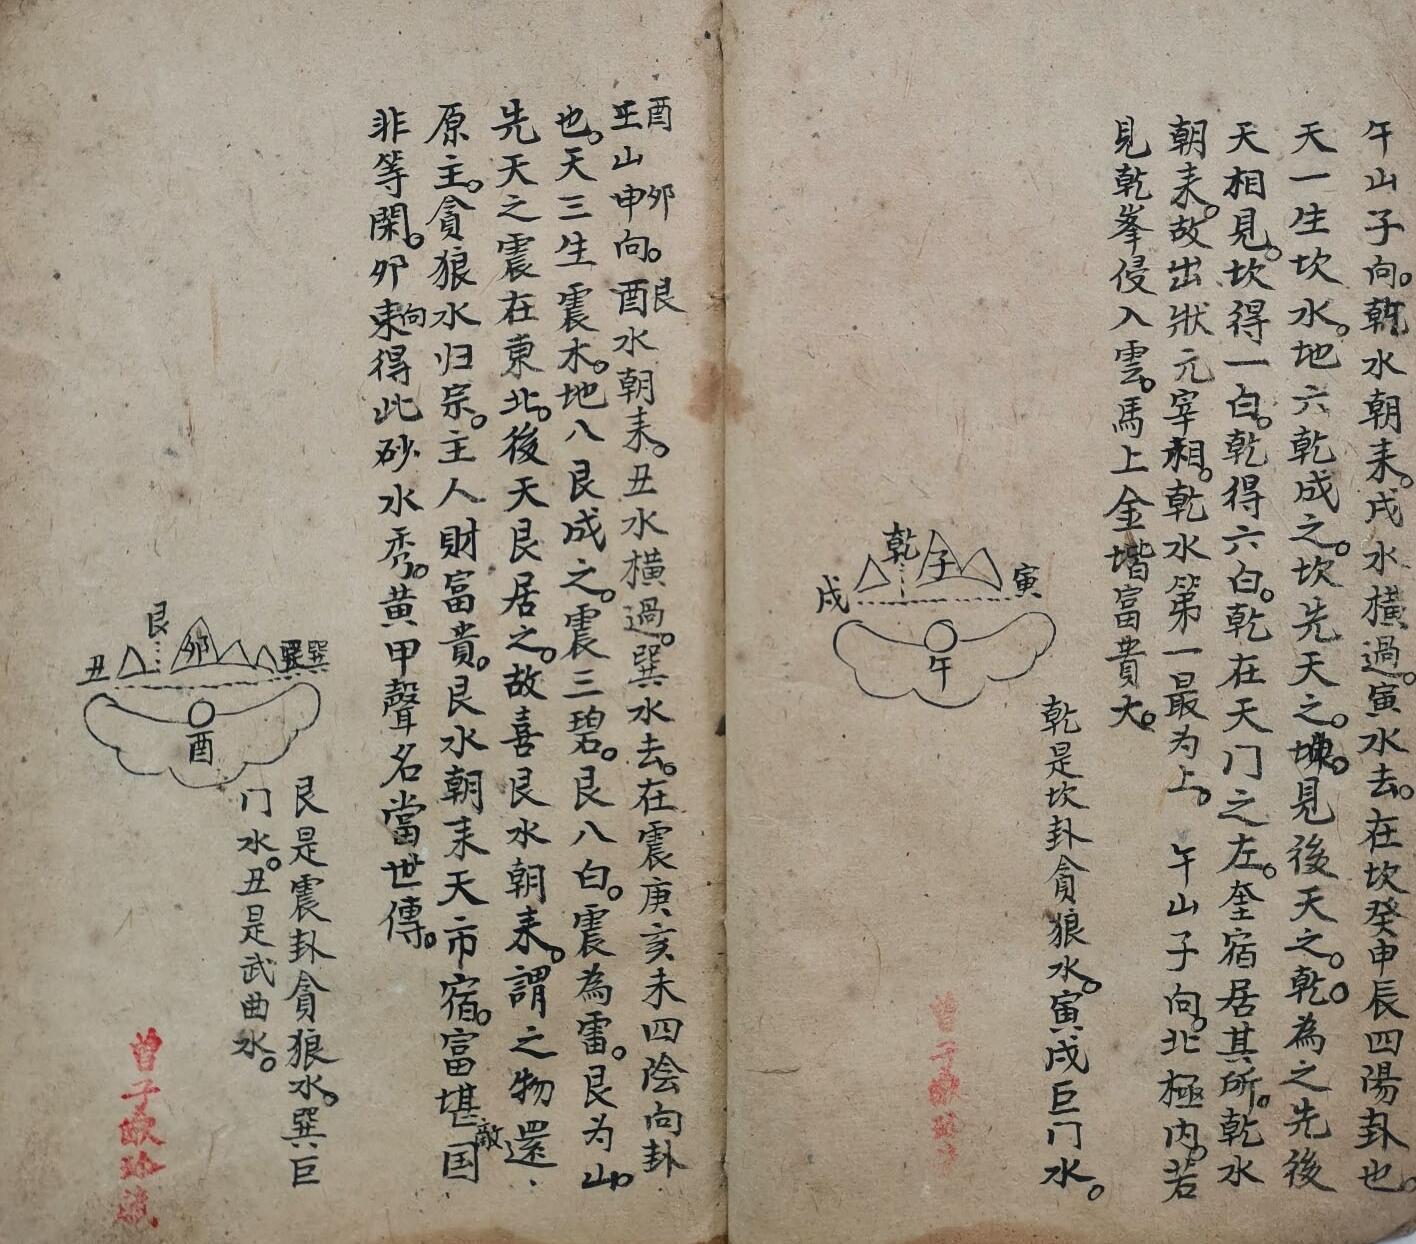 午山子向。乾水朝来。戌水橫過。寅水去。在坎癸申辰四陽卦也。
天一生坎水。地六乾成之。坎先天之。坤。見後天之。乾。為之先後
天相見。坎得一白。乾得六白。乾在天门之左。奎宿居其所。乾水
朝来。故出狀元宰相。乾水第一最为上。午山子向。北極内。若
見乾峯侵入雲。馬上金堦富貴大。
乾是坎卦貪狼水。寅戌巨门水。
乾
子
戌
寅
午
酉卯艮
王山申向。酉水朝来。丑水橫過。巽水去。在震庚亥未四陰向卦
也。天三生震木。地八艮成之。震三碧。艮八白。震為雷。艮为山。
先天之震在東北。後天艮居之。故喜艮水朝来。謂之物還
原主。貪狼水归宗。主人財富貴。艮水朝来天市宿。富堪敵国
非等閑。卯東向得此砂水秀。黄甲聲名當世傳。
艮
卯
丑
巽
巽
酉
艮是震卦貪狼水。巽巨
门水。丑是武曲水。
曾子